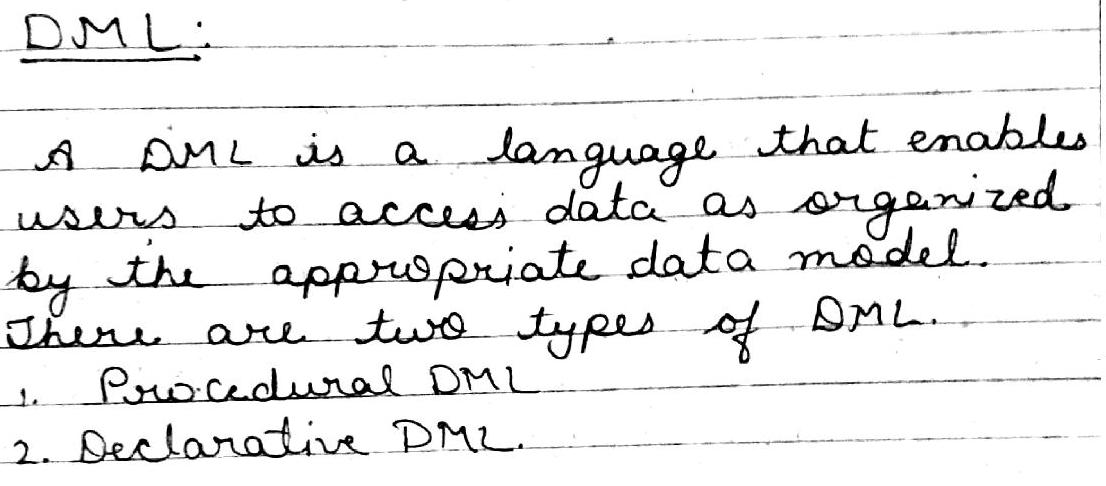 DML:
A DML is a language that enables
users to access data as organized
by the appropriate data model.
There are two types of DML.
1. Procedural DML
2. Declarative DML.